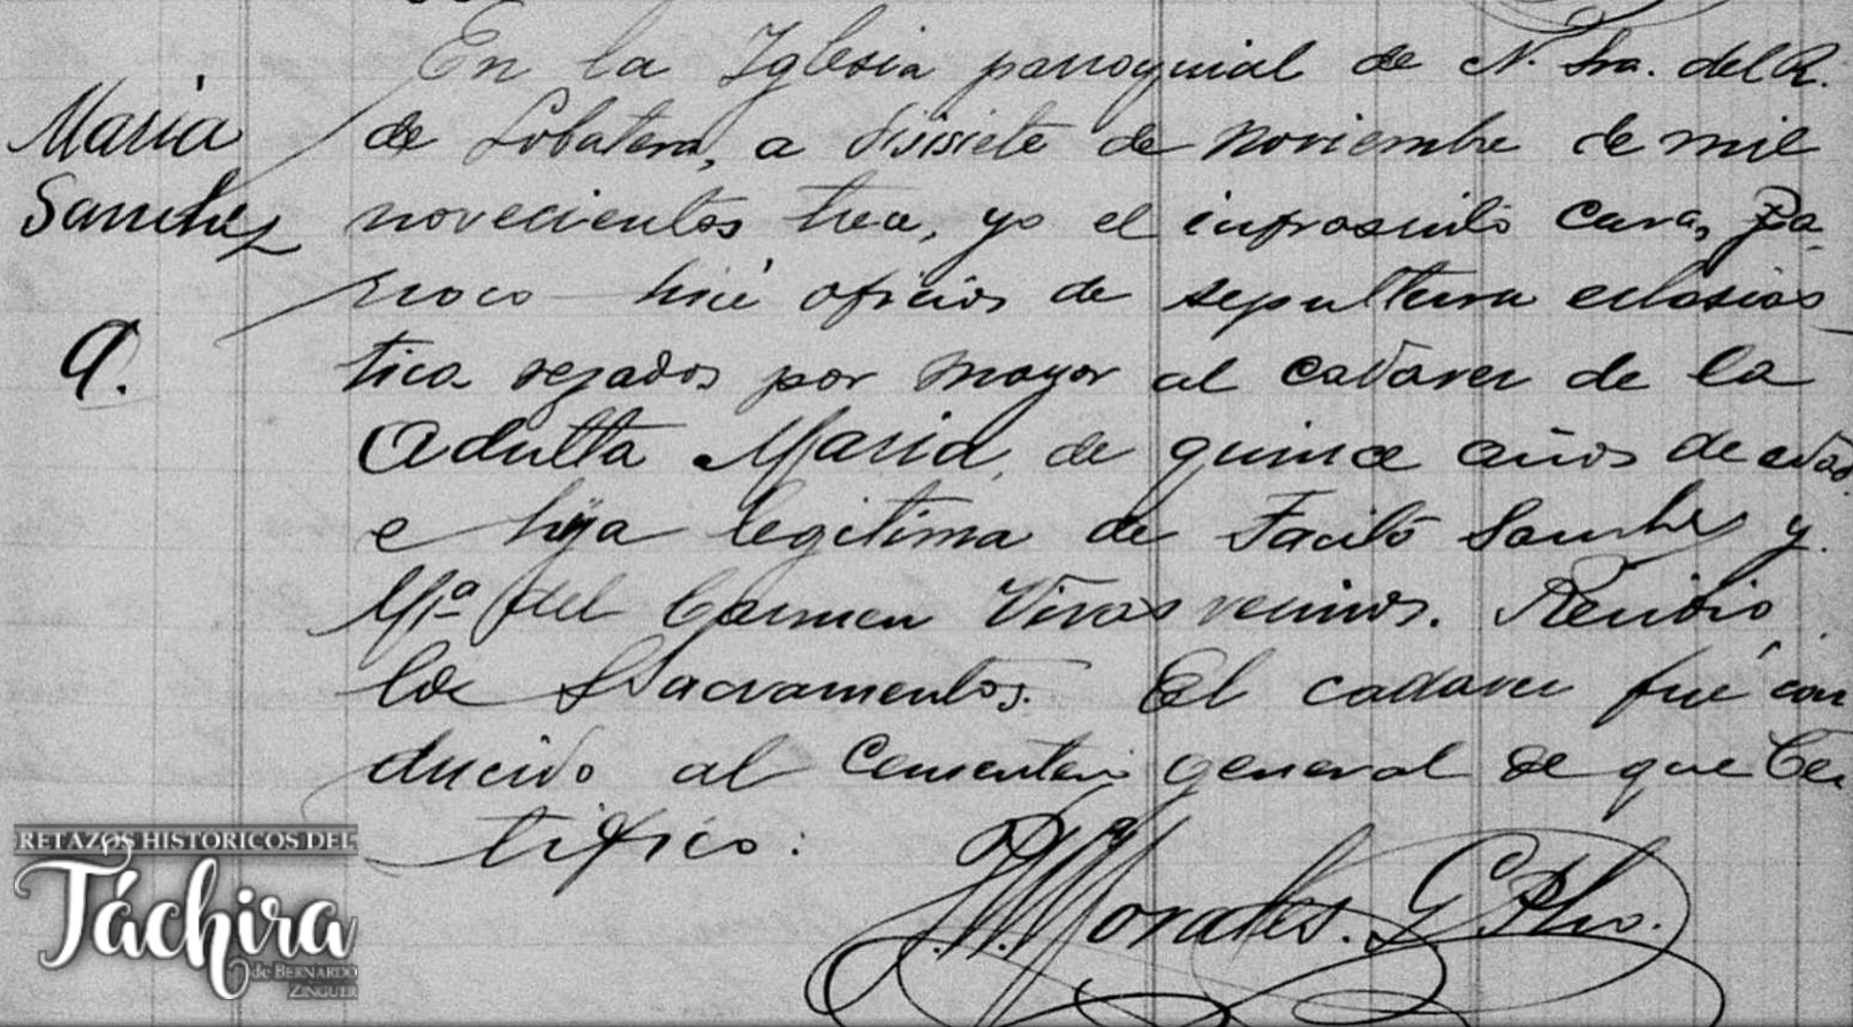 En la Iglesia parroquial de N. Sra. del R.
Maria
de Lobatera, a disisiete de noviembre de mil
Sanchez
novecientos tres, yo el infrascrito Cura, Pá-
rroco hicé oficios de sepultura eclesias-
A.
tica rezados por mayor al cadaver de la
Adulta Maria, de quince años de edad
e hija legitima de Facito Sanchez y
Mª del Carmen Vivas vecinos. Recibió
los Sacramentos. El cadaver fué con
ducido al Cementerio general de que Cer
tifico:
Morales. G. Pbro.
RETAZOS HISTORICOS DEL
Táchira
de BERNARDO
ZINGUER